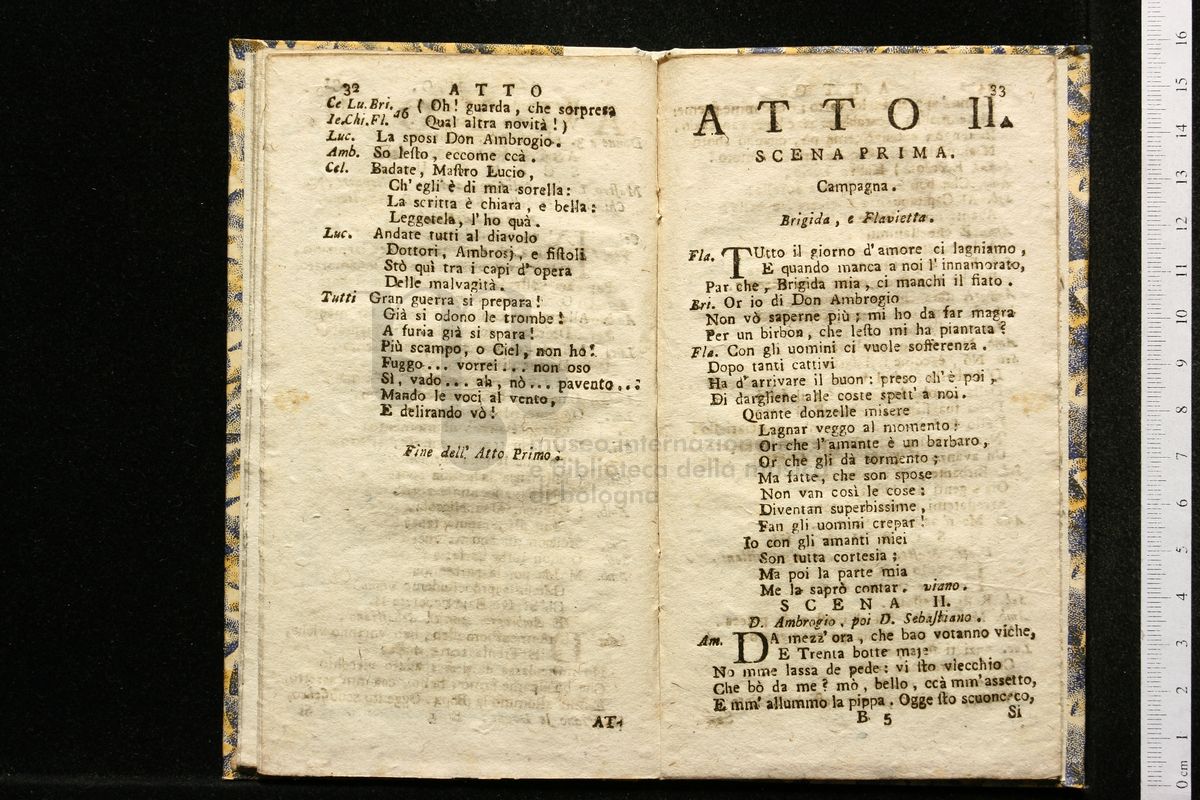 32 ATTO
Ce Lu. Bri. a6 ( Oh! guarda, che sorpresa
Ie. Chi. Fl. Qual altra novità!)
Luc. La sposi Don Ambrogio.
Amb. So lesto, eccome ccà.
Cel. Badate, Mastro Lucio,
Ch' egli è di mia sorella:
La scritta è chiara, e bella:
Leggetela, l' ho quà.
Luc. Andate tutti al diavolo
Dottori, Ambrosj, e fistoli
Stò quì tra i capi d' opera
Delle malvagità.
Tutti Gran guerra si prepara!
Già si odono le trombe!
A furia già si spara!
Più scampo, o Ciel, non ho!
Fuggo... vorrei... non oso
Sì, vado... ah, nò... pavento...
Mando le voci al vento,
E delirando vò!
Fine dell' Atto Primo.
AT-
33
ATTO II.
SCENA PRIMA.
Campagna.
Brigida, e Flavietta.
Fla. TUtto il giorno d' amore ci lagniamo,
E quando manca a noi l' innamorato,
Par che, Brigida mia, ci manchi il fiato.
Bri. Or io di Don Ambrogio
Non vò saperne più; mi ho da far magra
Per un birbon, che lesto mi ha piantata?
Fla. Con gli uomini ci vuole sofferenza.
Dopo tanti cattivi
Ha d' arrivare il buon: preso ch' è poi,
Di dargliene alle coste spett' a noi.
Quante donzelle misere
Lagnar veggo al momento:
Or che l' amante è un barbaro,
Or che gli dà tormento;
Ma fatte, che son spose
Non van così le cose:
Diventan superbissime,
Fan gli uomini crepar!
Io con gli amanti miei
Son tutta cortesia;
Ma poi la parte mia
Me la saprò contar. viano.
SCENA II.
D. Ambrogio, poi D. Sebastiano.
Am. DA mezz' ora, che bao votanno viche,
E Trenta botte maje
No mme lassa de pede: vi sto viecchio
Che bò da me? mò, bello, ccà mm' assetto,
E mm' allummo la pippa. Ogge sto scuonceco,
B 5 Si
museo internazionale
biblioteca della musica
di bologna
0 cm 1 2 3 4 5 6 7 8 9 10 11 12 13 14 15 16